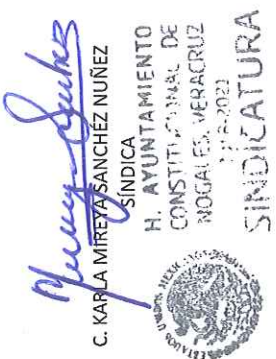 C. KARLA MIREYA SANCHEZ NUÑEZ
SÍNDICA
H. AYUNTAMIENTO
CONSTITUCIONAL DE
NOGALES, VERACRUZ
SINDICATURA
ESTADOS UNIDOS MEXICANOS